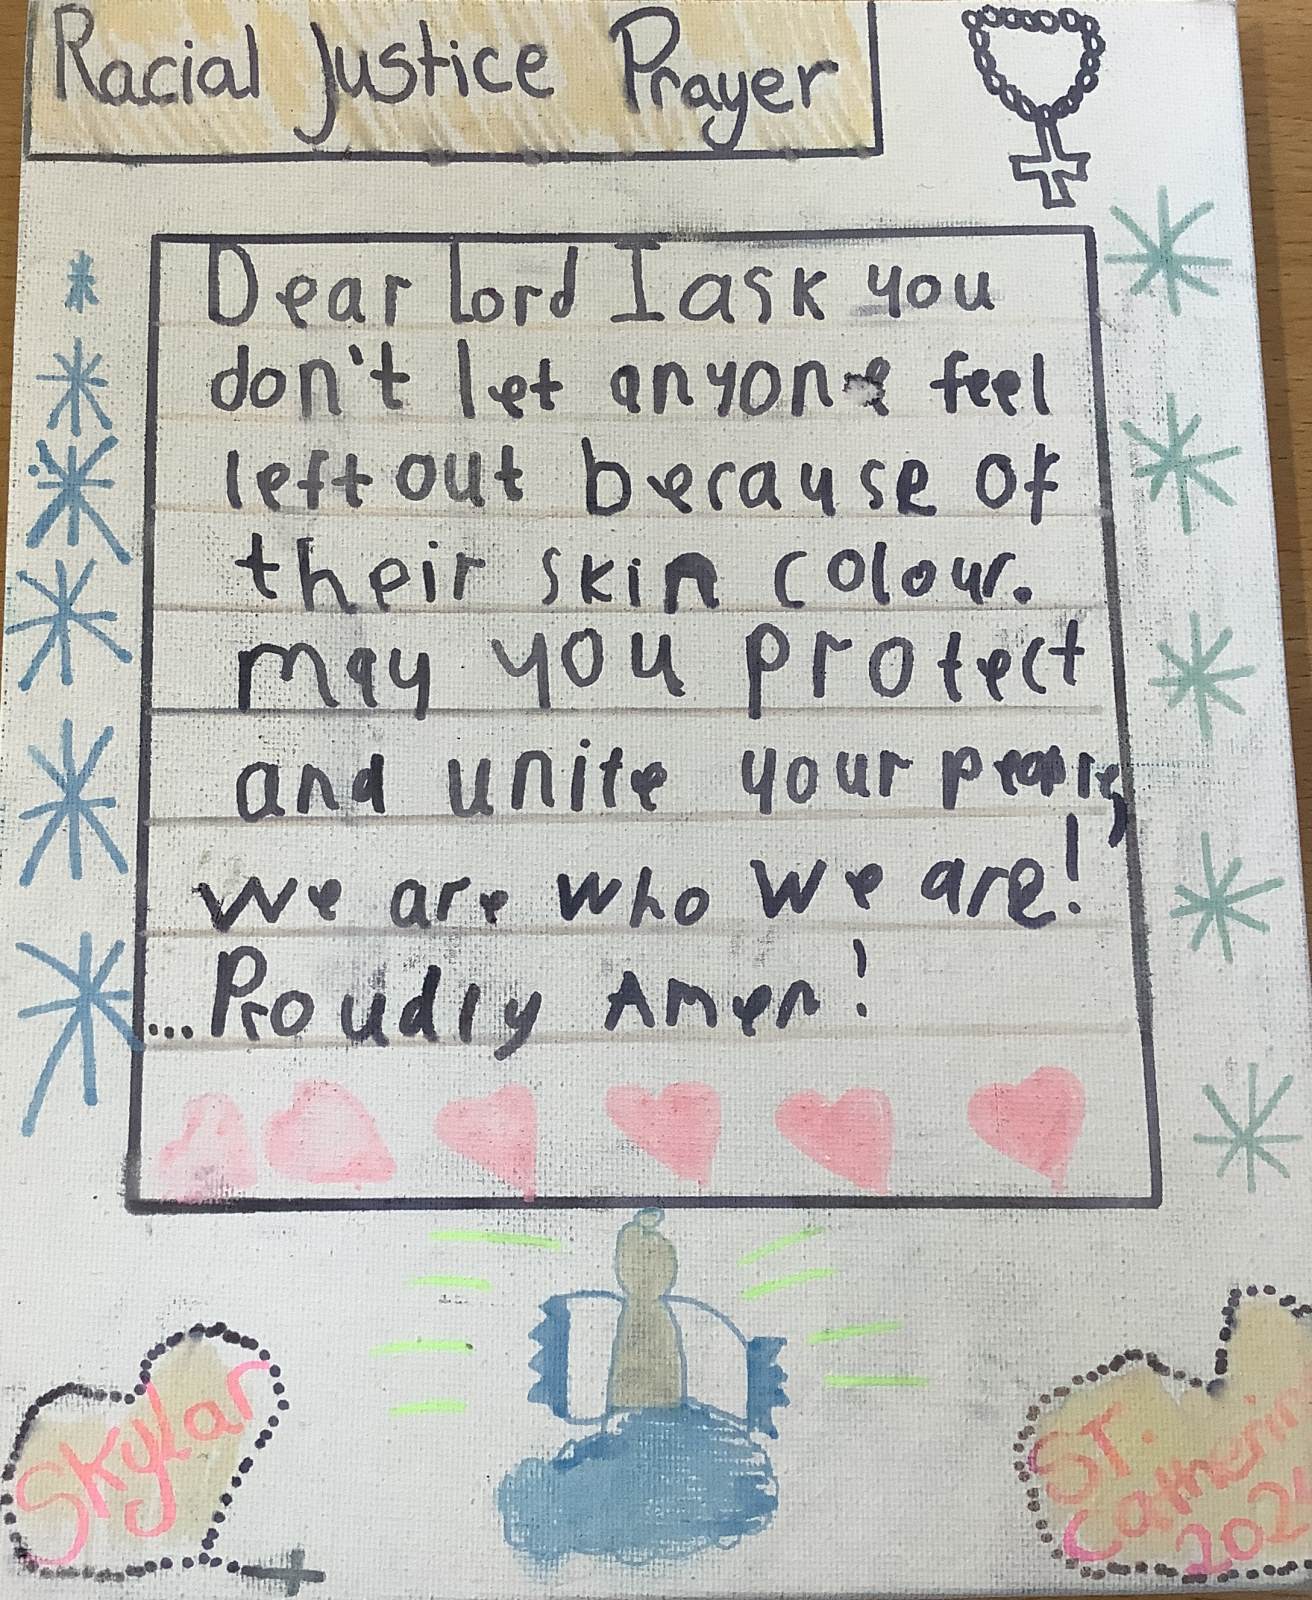 Racial Justice Prayer
Dear Lord I ask you
don't let anyone feel
left out because of
their skin colour.
may you protect
and unite your people,
we are who we are!
...Proudly Amen!
Skylar
ST.